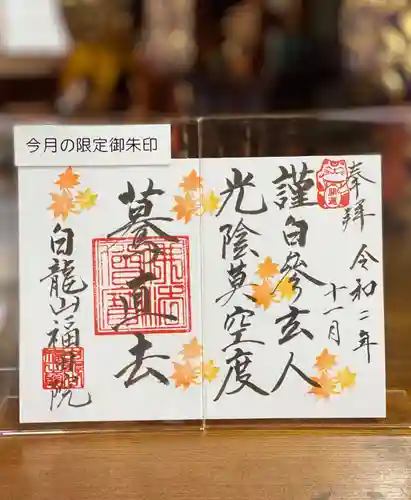 今月の限定御朱印
奉拝
令和二年
十一月
謹白参玄人
光陰莫空度
驀直去
白龍山福寿院